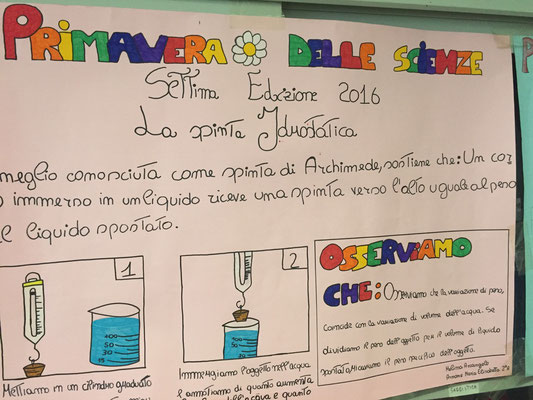 PRIMAVERA DELLE SCIENZE
Settima Edizione 2016
La spinta Idrostatica
meglio conosciuta come spinta di Archimede, sostiene che: Un cor
o immerso in un liquido riceve una spinta verso l'alto uguale al peso
el liquido spostato.
1
100
50
30
15
Mettiamo in un cilindro graduato
2
100
50
30
15
Immergiamo l'oggetto nell'acqua
e annotiamo di quanto aumenta
dell'acqua e quanto
OSSERVIAMO
CHE: Osserviamo che la variazione di peso,
coincide con la variazione di volume dell'acqua. Se
dividiamo il peso dell'oggetto per il volume di liquido
spostato, otteniamo il peso specifico dell'oggetto.
Elisabetta